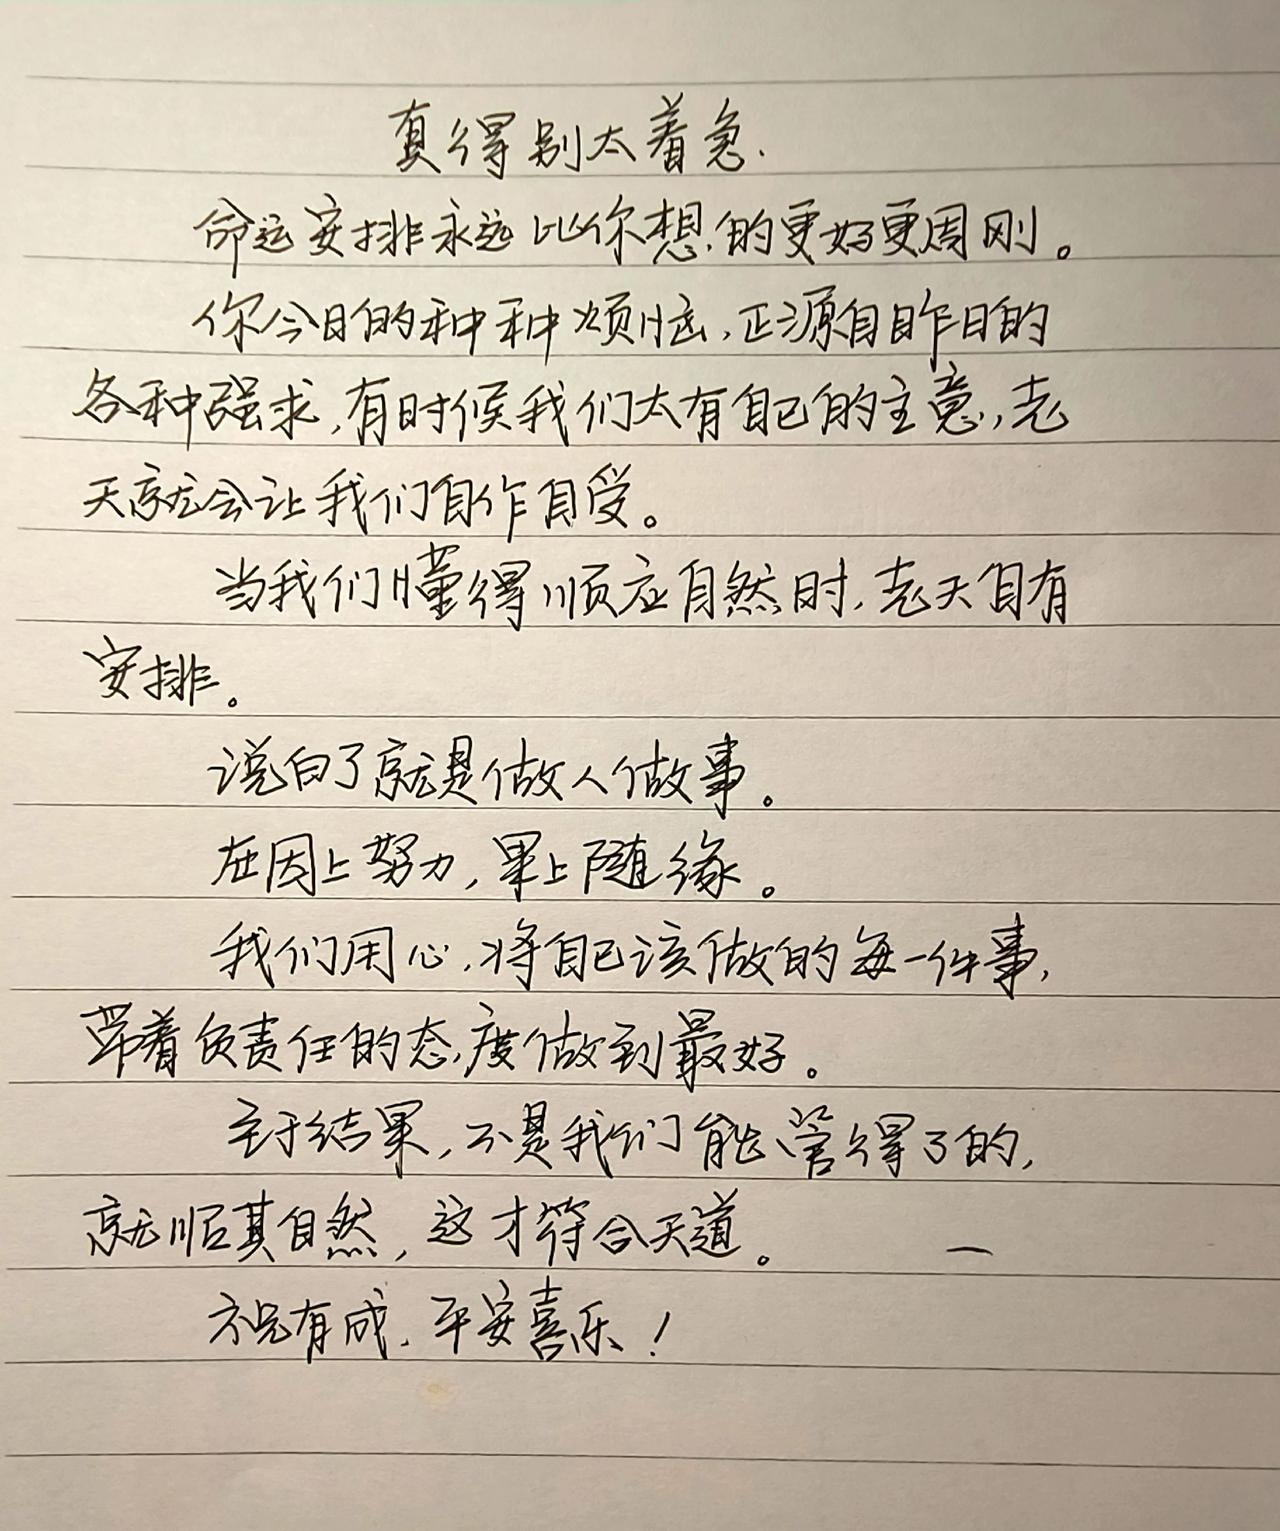 真得别太着急.
命运安排永远比你想的更好更周刚。
你今日的种种烦恼,正源自昨日的
各种强求,有时候我们太有自己的主意,老
天就会让我们自作自受。
当我们懂得顺应自然时,老天自有
安排。
说白了就是做人做事。
在因上努力,果上随缘。
我们用心,将自己该做的每一件事,
带着负责任的态度做到最好。
至于结果,不是我们能管得了的,
就顺其自然,这才符合天道。 一
祝有成、平安喜乐!